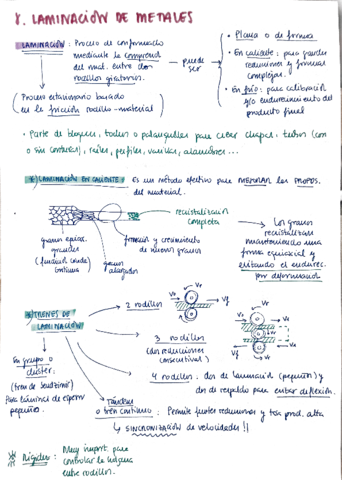 8. LAMINACIÓN DE METALES
LAMINACIÓN: Proceso de conformado
mediante la compresión
del mat. entre dos
rodillos giratorios.
puede
ser
• Plana o de forma
• En caliente: para grandes
reducciones y formas
complejas.
• En frío: para calibración
y/o endurecimiento del
producto final
(Proceso estacionario basado
en la fricción rodillo-material)
• Parte de bloques, tochos o palanquillas para crear chapas, tubos (con
o sin costuras), raíles, perfiles, varillas, alambres...
LAMINACIÓN EN CALIENTE: Es un método efectivo para MEJORAR las PROPDS.
del material.
recristalización
completa
Los granos
recristalizan
manteniendo una
forma equiaxial y
evitando el endurec.
por deformación
granos equiax.
grandes
(fundición colada)
continua
granos
alargados
formación y crecimiento
de nuevos granos
TRENES DE
LAMINACIÓN
2 rodillos
Vo
Vf
3 rodillos
(dan reducciones
consecutivas)
4 rodillos: dos de laminación (pequeños) y
dos de respaldo para evitar deflexión.
En grupo o
clúster:
(tren de Sendzimir)
Para láminas de espesor
pequeños.
Tándem
o tren continuo: Permite fuertes reducciones y tasa prod. alta
↳ SINCRONIZACIÓN de velocidades!!
Rigidez: Muy import. para
controlar la holgura
entre rodillos.